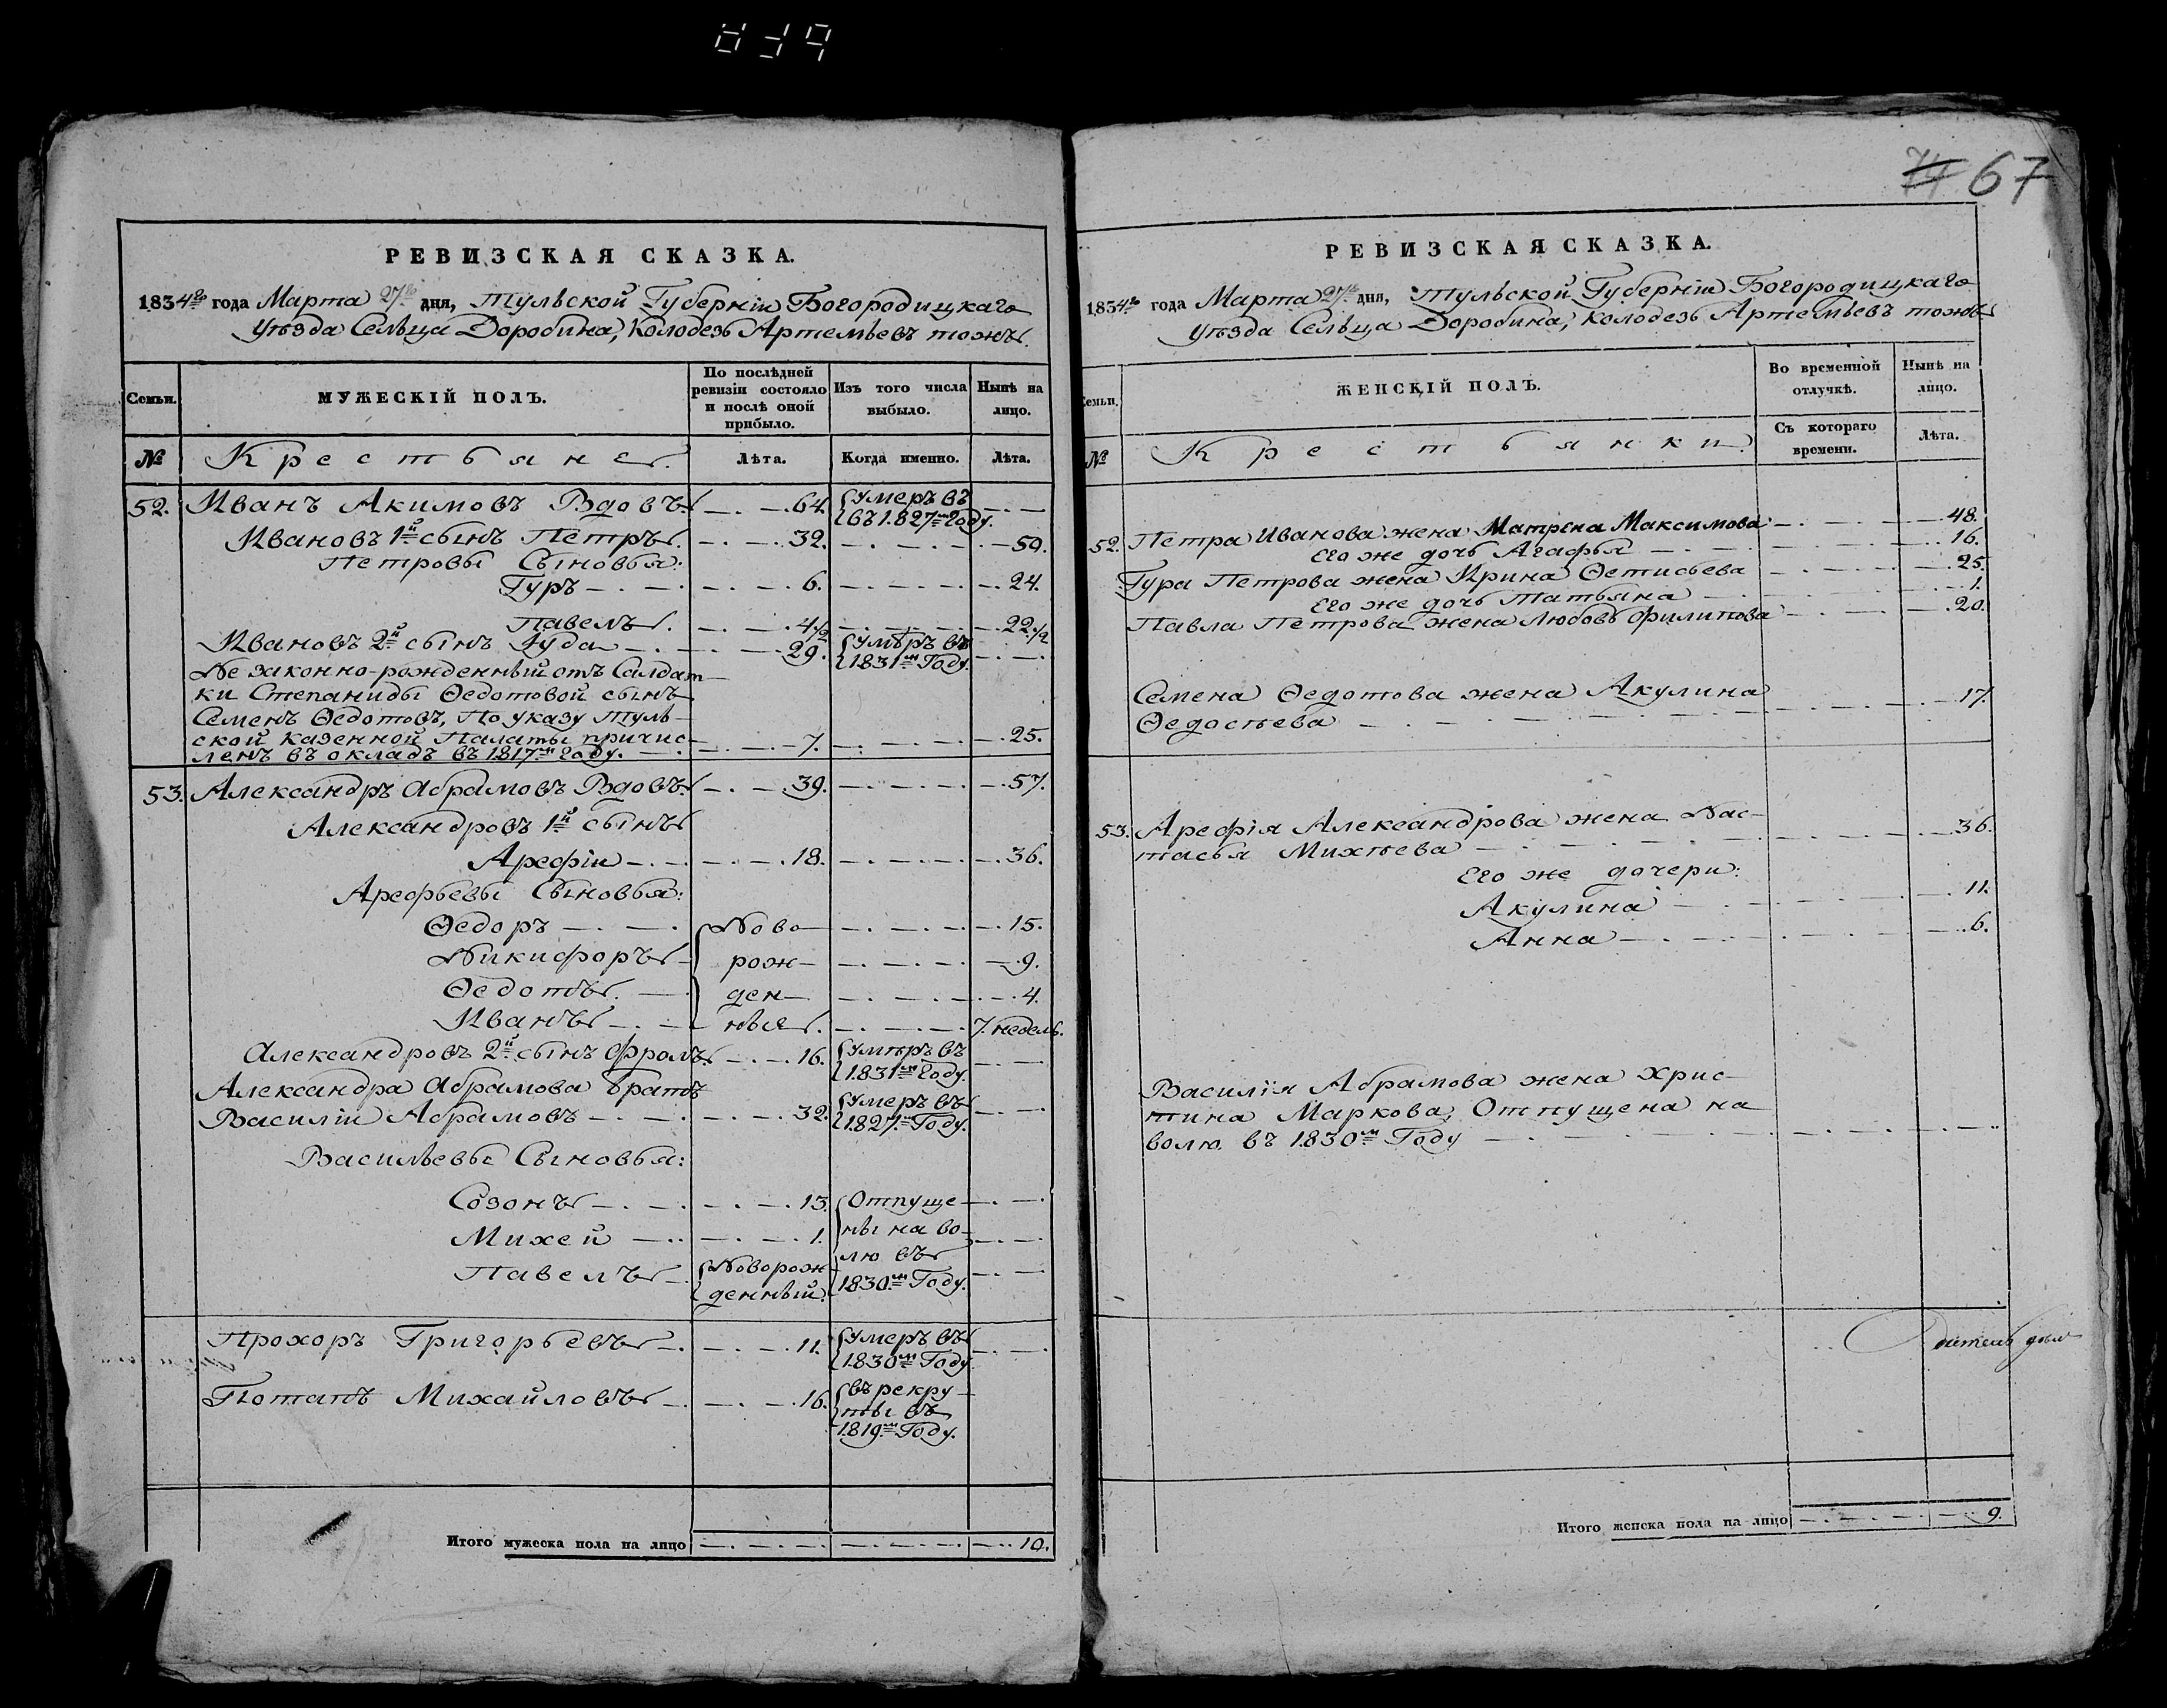 67
РЕВИЗСКАЯ СКАЗКА.
1834го года Марта 27го дня, Тульской Губерніи Богородицкаго
Уѣзда Сельца Доробина, Колодезь Артемьевъ тожъ.
Семьи.
МУЖЕСКІЙ ПОЛЪ.
По послѣдней ревизіи состояло и послѣ оной прибыло.
Изъ того числа выбыло.
Нынѣ на лицо.
№
Крестьяне.
Лѣта.
Когда именно.
Лѣта.
52. Иванъ Акимовъ Вдовъ — 64. Умеръ въ
въ 1827м Году.
Ивановъ 1й сынъ Петръ. — 32. — 50.
Петровы Сыновья:
Гуръ — 6. — 24.
Павелъ. — 4 1/2 — 22 1/2
Ивановъ 2й сынъ Іуда — 29. Умѣръ въ
1831м Году.
Не законно-рожденный отъ Салдат-
ки Степаниды Ѳедотовой сынъ
Семенъ Ѳедотовъ, По указу Туль-
ской казенной Палаты причис-
ленъ въ окладъ въ 1817м Году. — 7. — 25.
53. Александръ Абрамовъ Вдовъ — 39. — 57.
Александровъ 1й сынъ
Арефіи — 18. — 36.
Арефьевы Сыновья:
Ѳедоръ — Ново- — 15.
Никифоръ — рож- — 9.
Ѳедотъ. — ден- — 4.
Иванъ — ныя. — 7. недель.
Александровъ 2й сынъ Фролъ — 16. Умѣръ въ
1831м Году.
Александра Абрамова братъ
Василіи Абрамовъ — 32. Умеръ въ
1827м Году.
Васильевы Сыновья:
Созонъ — 13. Отпуще-
ны на во-
Михей — 1.
лю въ
Павелъ — Новорож-
денный. 1830м Году.
Прохоръ Григорьевъ — 11. Умеръ въ
1830м Году
Потапъ Михайловъ — 16. въ рекру-
ты въ
1819м Году.
Итого мужеска пола на лицо — 10.
РЕВИЗСКАЯ СКАЗКА.
1834го года Марта 27го дня, Тульской Губерніи Богородицкаго
Уѣзда Сельца Доробина, Колодезь Артемьевъ тожъ
Семьи.
ЖЕНСКІЙ ПОЛЪ.
Во временной отлучкѣ.
Нынѣ на лицо.
№
Крестьянки.
Съ котораго времени.
Лѣта.
52. Петра Иванова жена Матрена Максимова — 48.
Его же дочь Агафья — 16.
Гура Петрова жена Ирина Ѳетисьева — 25.
Его же дочь Татьяна — 1.
Павла Петрова жена Любовь Филипова — 20.
Семена Ѳедотова жена Акулина
Ѳедосѣева — 17.
53. Арефія Александрова жена Нас-
тасья Михѣева — 36.
Его же дочери:
Акулина — 11.
Анна — 6.
Василія Абрамова жена Хрис-
тина Маркова, Отпущена на
волю въ 1830м Году —
Итого женска пола на лицо — 9.